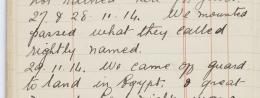 27 & 28. 11. 14. We mounted
passed what they called
rightly named.
29. 11. 14. We came off guard
to land in Egypt. A great